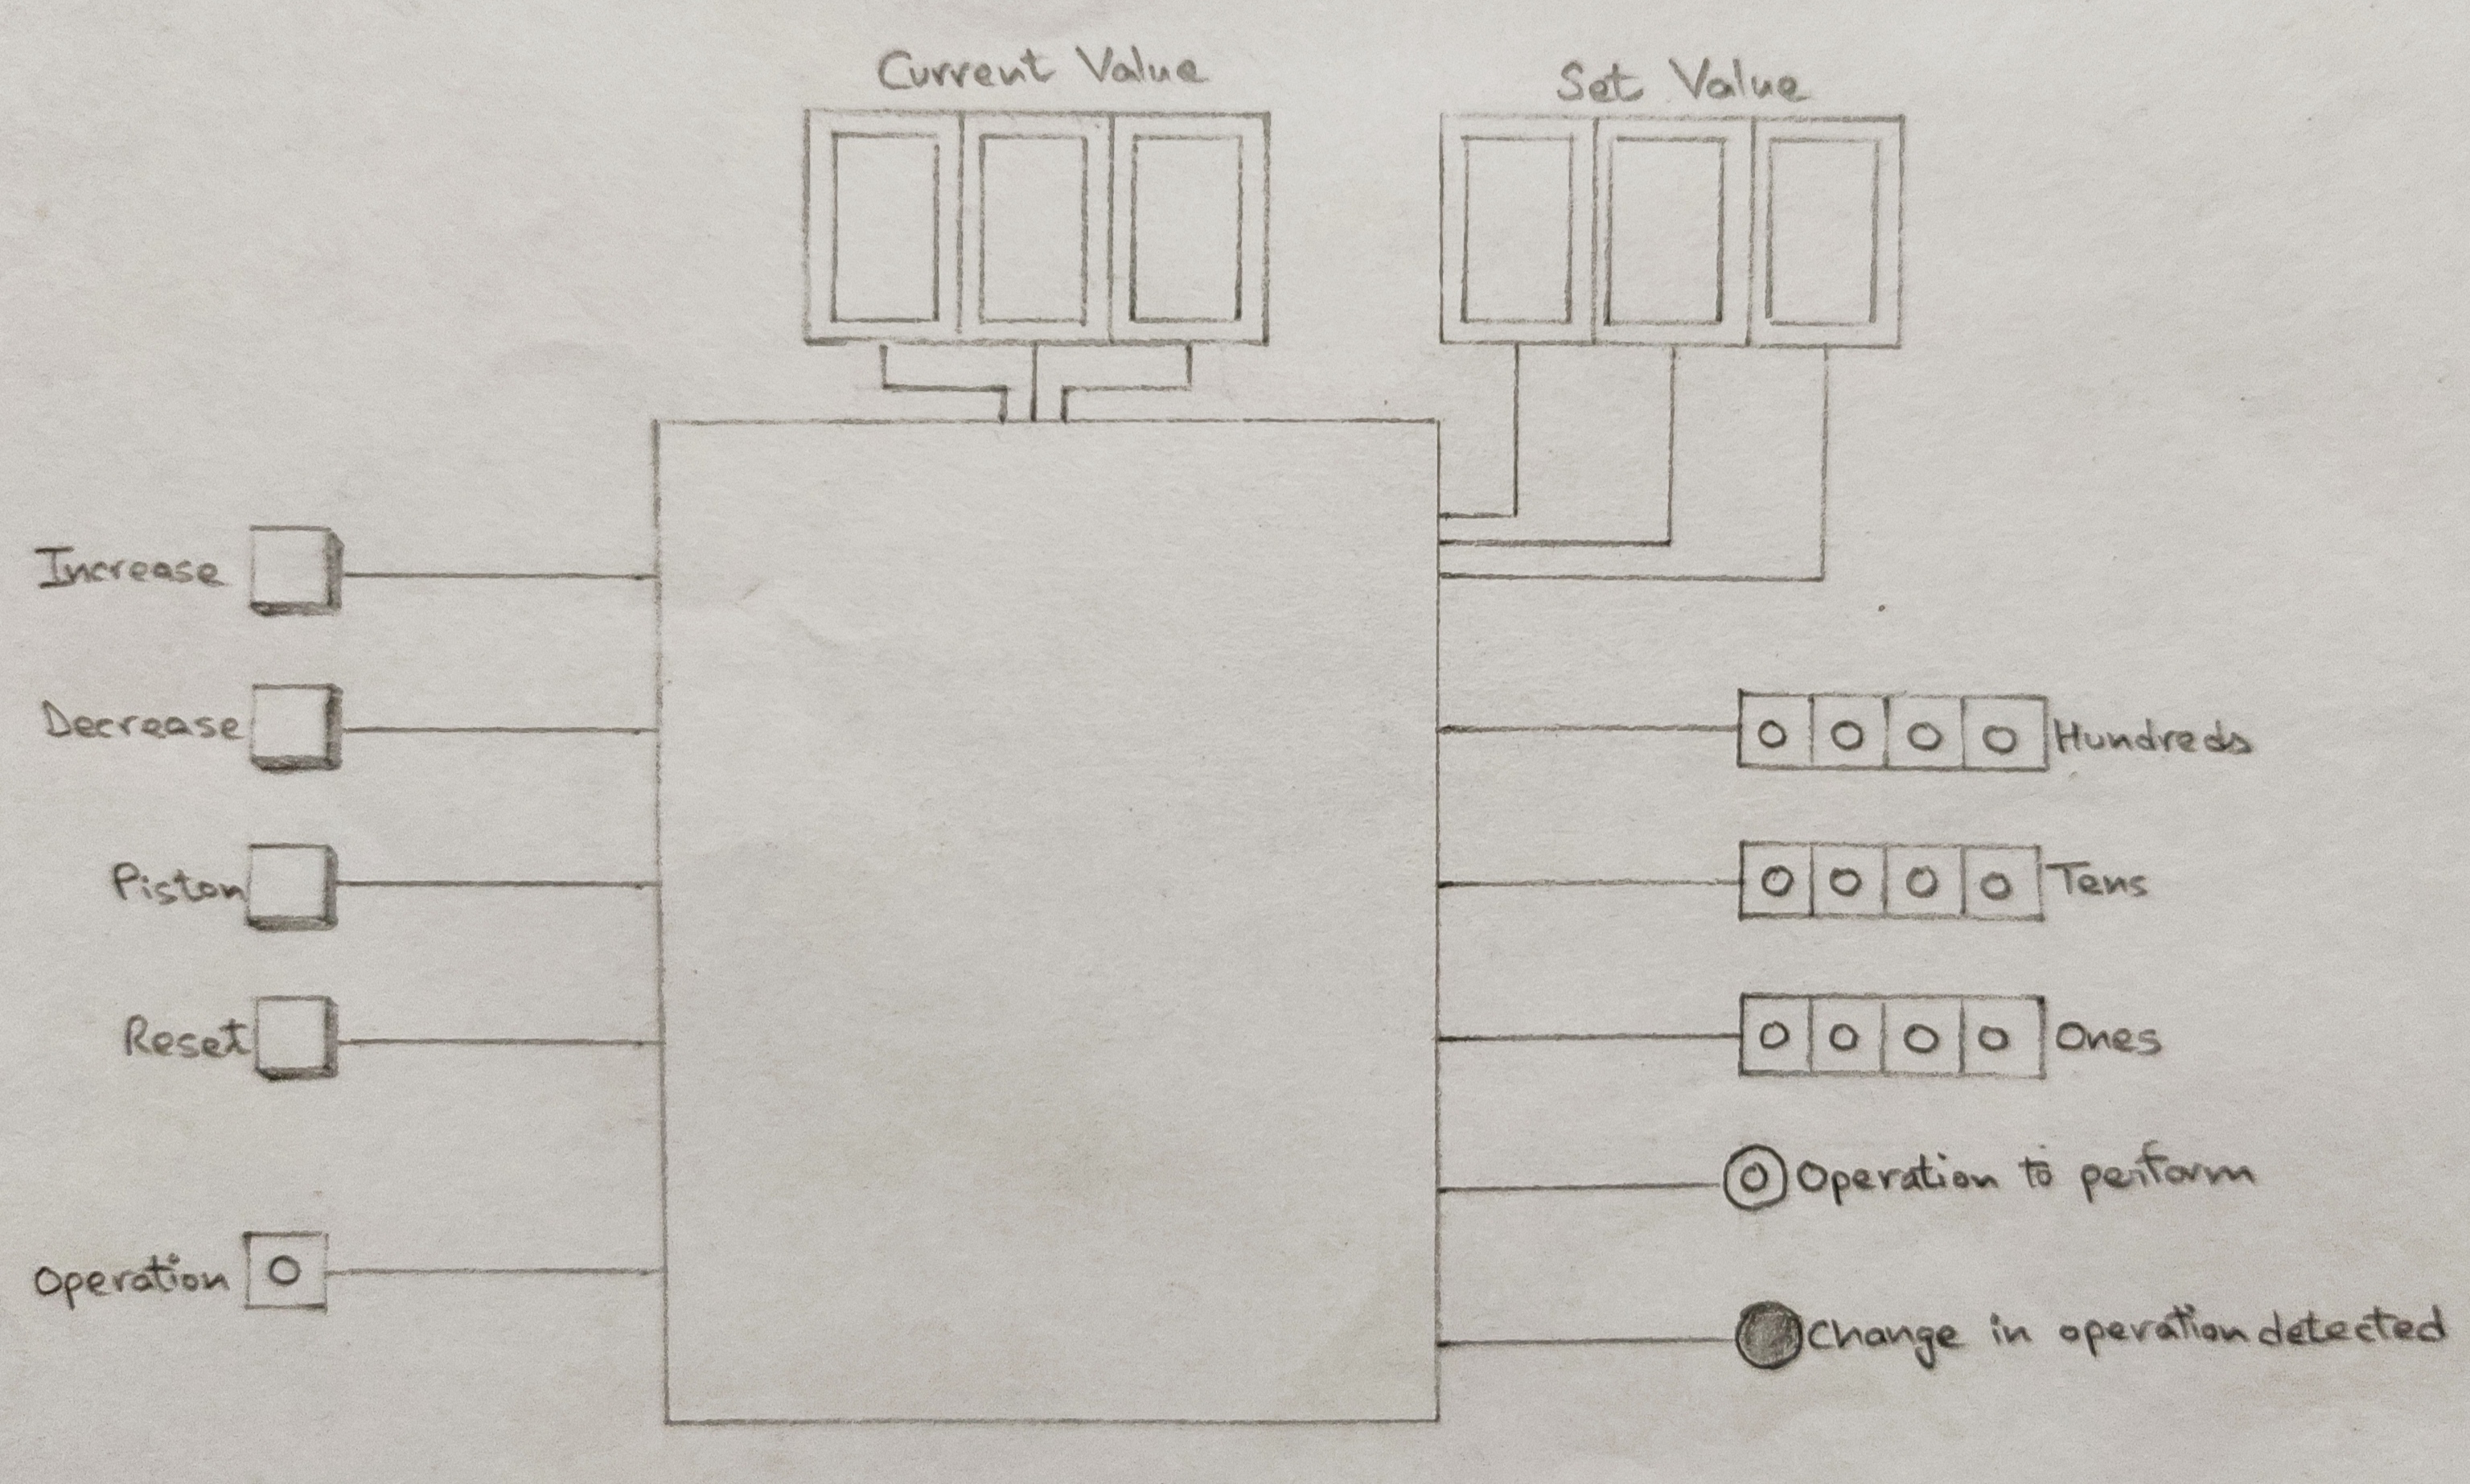 Current Value
Set Value
Increase
Decrease
Piston
Reset
Operation
Hundreds
Tens
Ones
Operation to perform
Change in operation detected